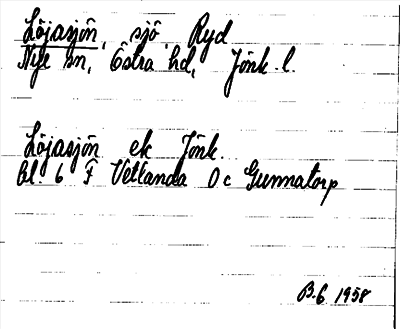 Löjasjön, sjö, Ryd
Nye sn, Östra hd, Jönk. l.
Löjasjön ek Jönk.
bl. 6 F Vetlanda 0 c Gunnatorp
B.6 1958